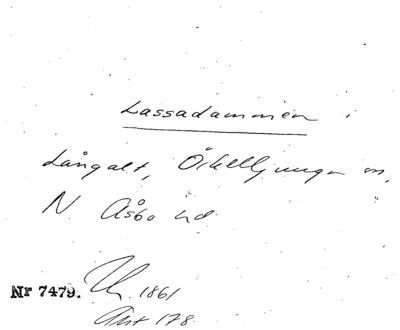 Lassadammen i
Långalt, Örkelljunga sn,
N. Åsbo hd
Nr 7479. 1861
178.